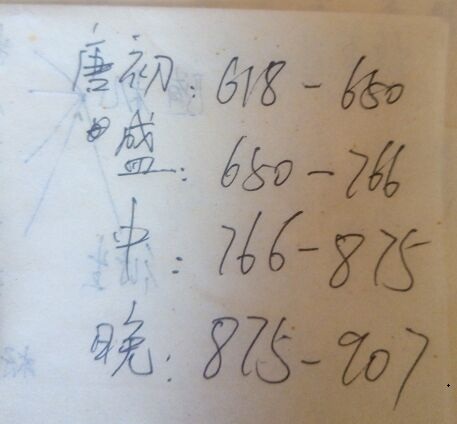 唐初: 618-650
盛: 650-766
中: 766-875
晚: 875-907